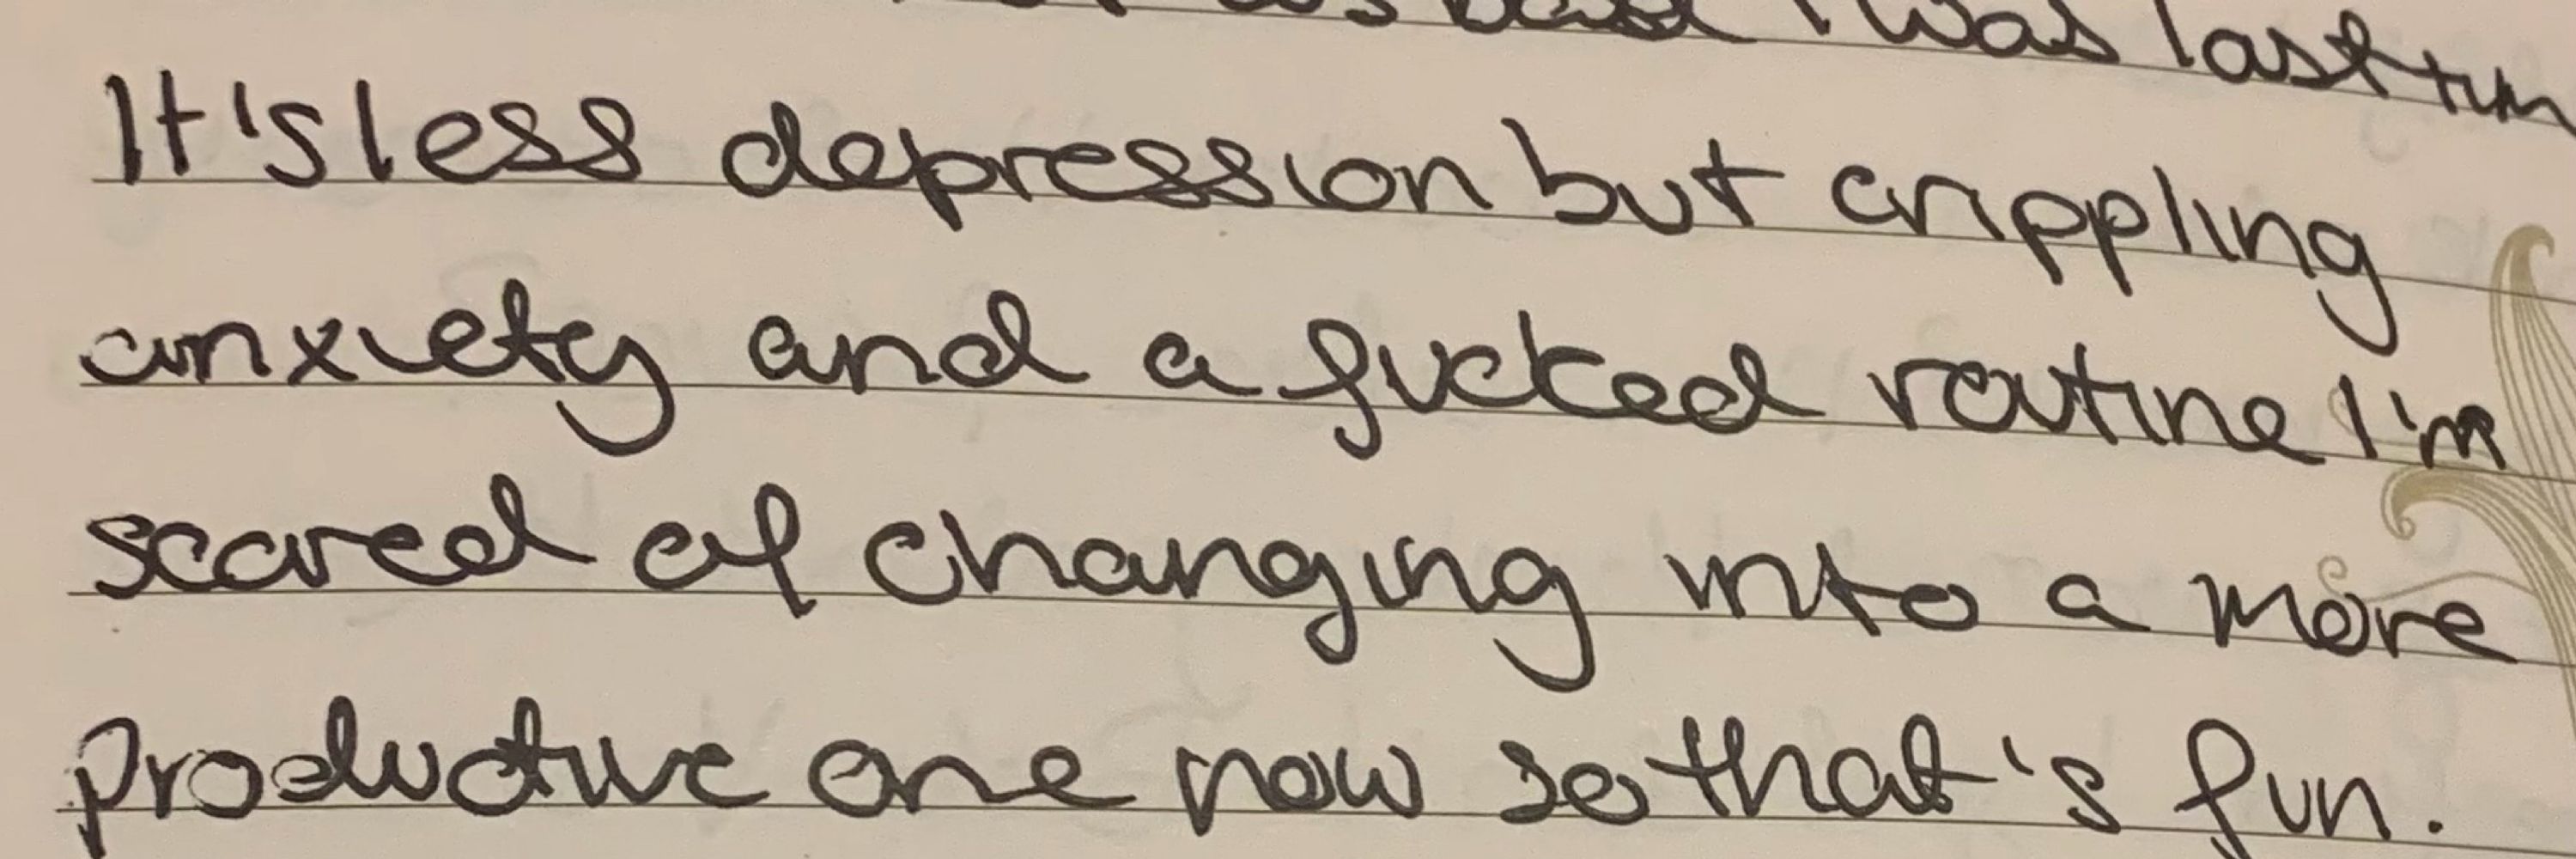 as bad I was last
It's less depression but crippling
anxiety and a fucked routine I'm
scared of changing into a more
productive one now so that's fun.